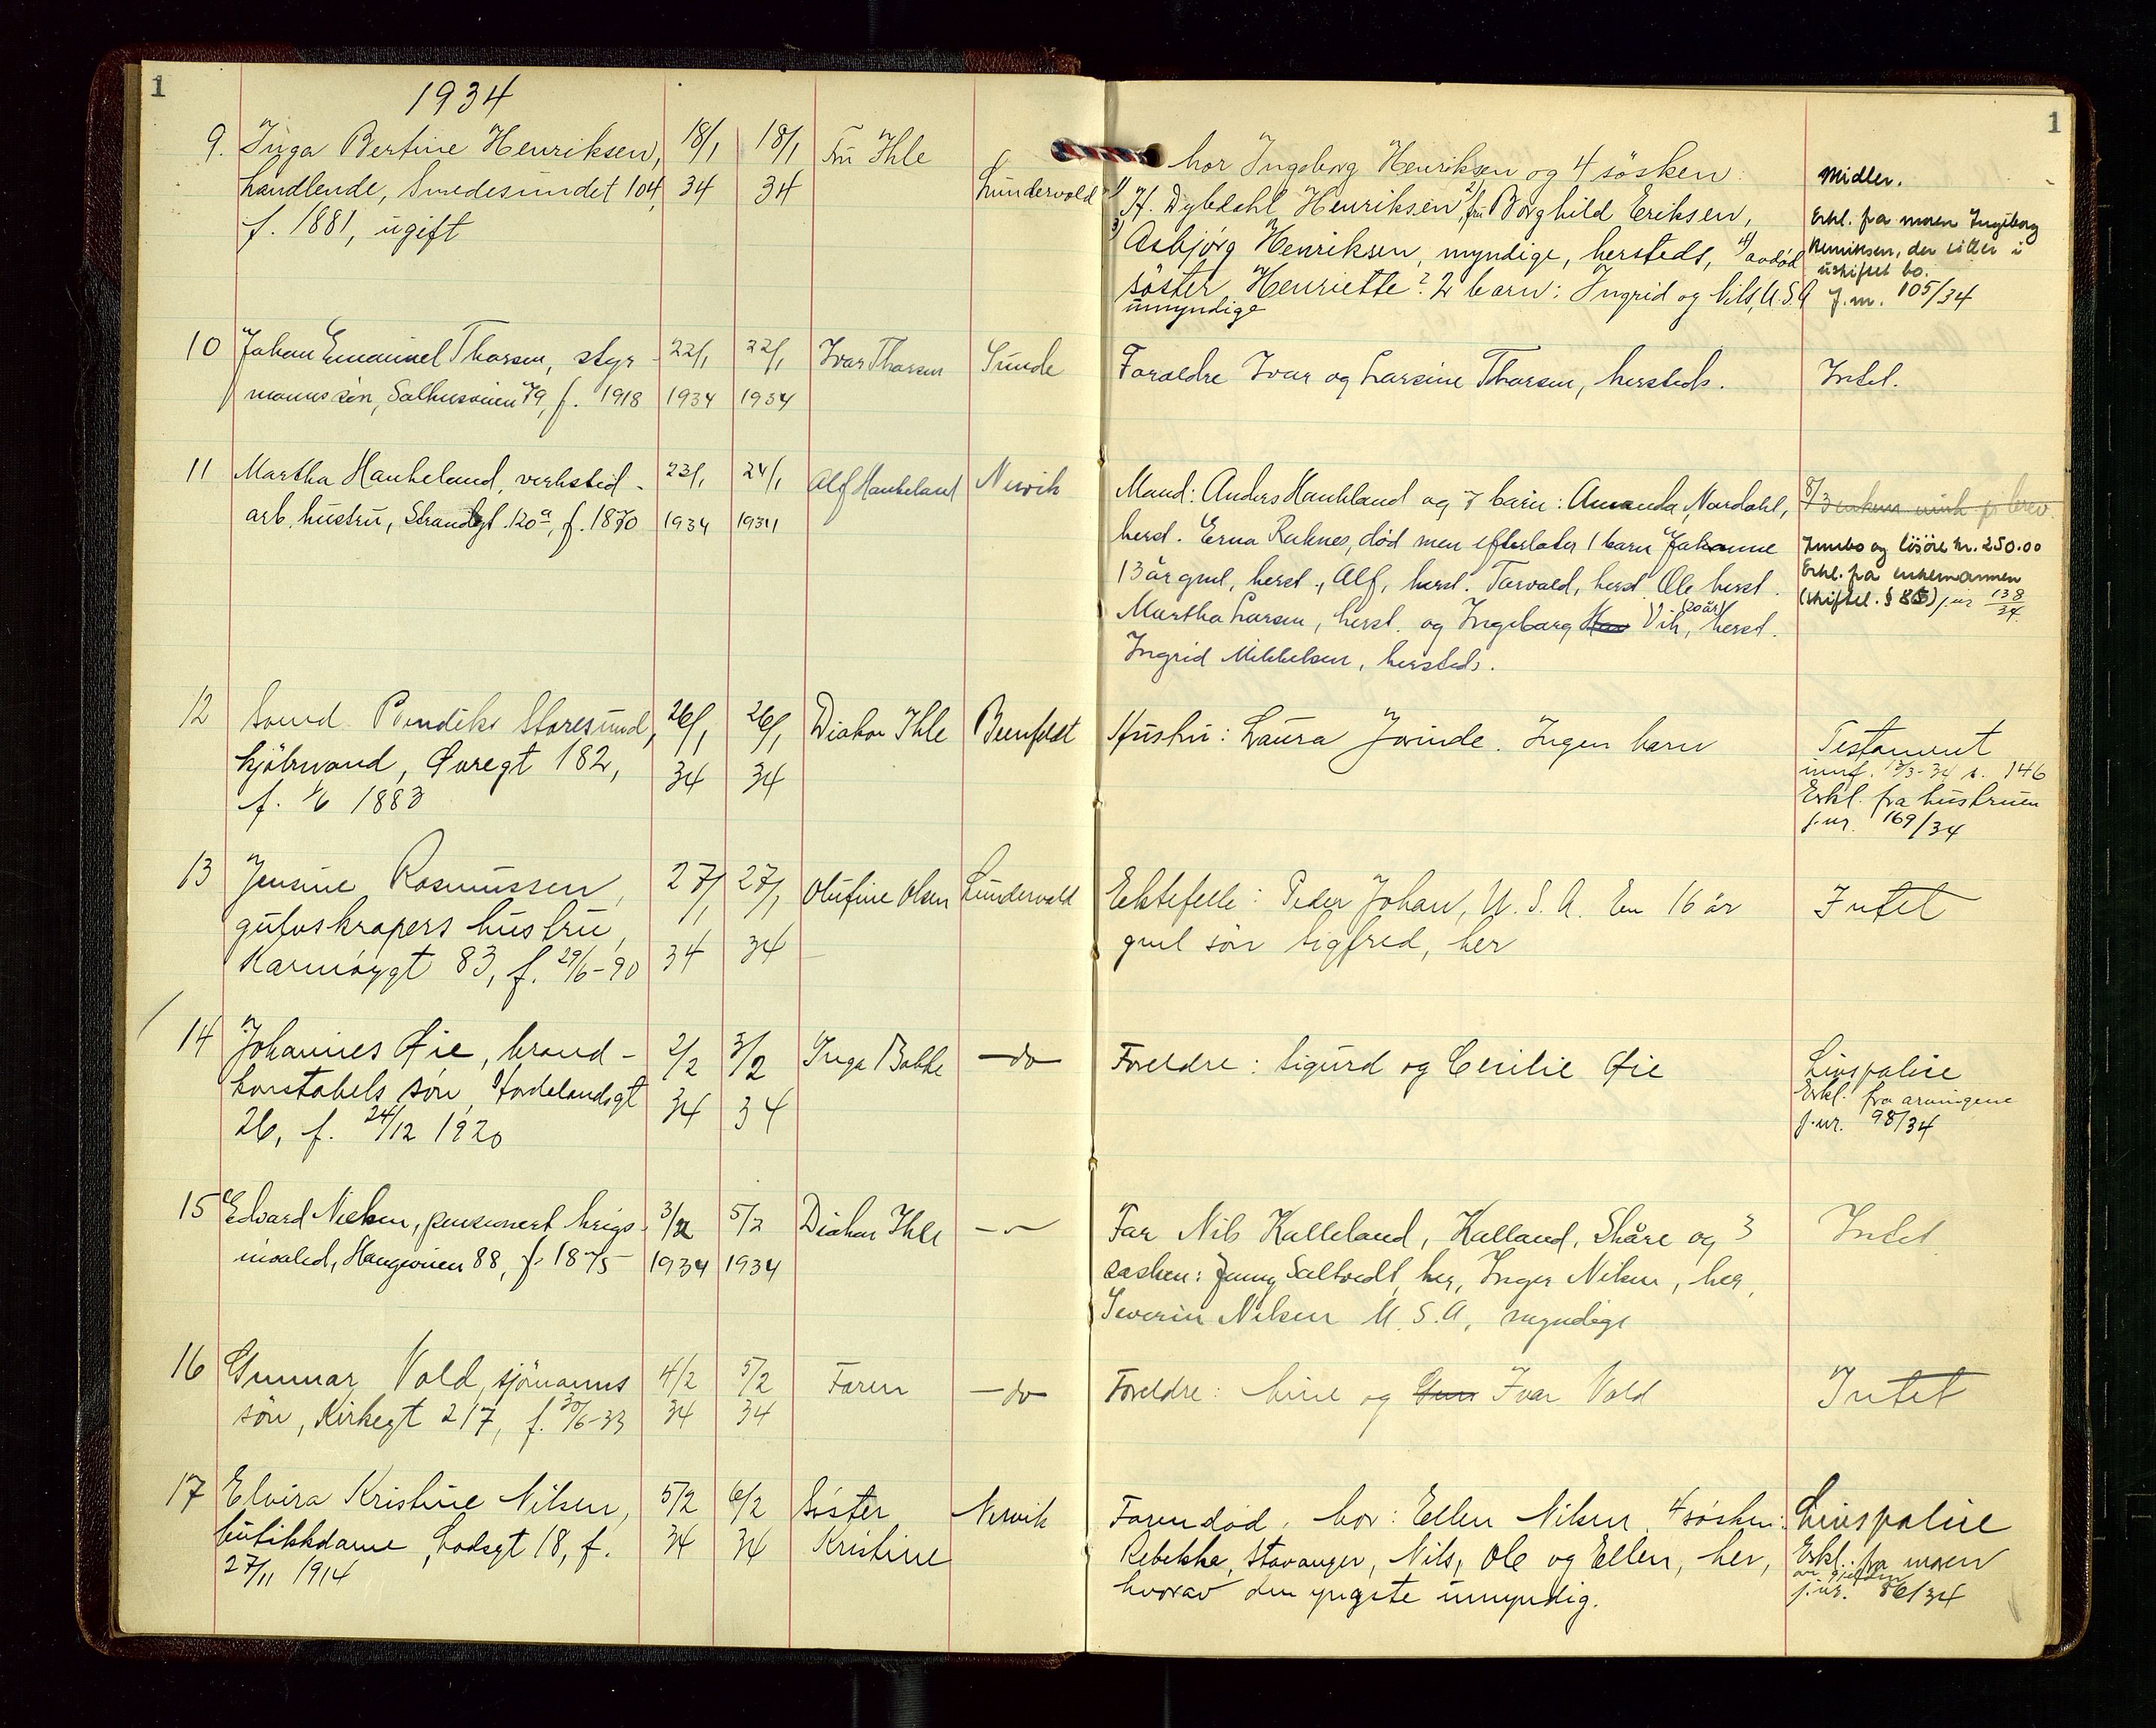 1
1934
1
9. Inga Bertine Henriksen, 18/1 18/1 Fru Ihle
handlende, Smedesundet 104, 34 34 Lundervold
f. 1881, ugift
Mor Ingeborg Henriksen og 4 søsken:
1) H. Dybdahl Henriksen, 2) fru Borghild Eriksen,
3) Asbjørg Henriksen, myndige, hersteds, 4) avdød
søster Henriette? 2 barn: Ingrid og Nils, U.S.A
umyndige
Midler.
Erkl. fra moren Ingeborg
Henriksen, der sitter i
uskiftet bo.
j.nr. 105/34
10 Johan Emanuel Thorsen, styr- 22/1 22/1 Ivar Thorsen Sunde
manns søn, Salhusveien 79, f. 1918 1934 1934
Foraldre Ivar og Larsine Thorsen, hersteds.
Intet.
11 Martha Haukeland, verksted- 23/1 24/1 Alf Haukeland Nervik
arb. hustru, Strandgt. 120a, f. 1870 1934 1934
Mand: Anders Haukland og 7 barn: Amanda Nordahl,
herst. Erna Røknes, død men efterlater 1 barn Johanne
13 år gml, herst., Alf, herst. Torvald, herst. Ole herst.
Martha Larsen, herst. og Ingeborg Vik, (20 år) herst.
Ingrid Mikkelsen, hersteds.
8/3 enkem. innk. pr brev.
Innbo og løsøre kr. 250.00
Erkl. fra enkemannen
(skiftel. § 85) j.nr 138/34
12 Sound Pendiks Storesund, 26/1 26/1 Diakon Ihle Beenfeldt
kjølmand, Øvregt 182, 34 34
f. 1/6 1883
Hustru: Laura Jorinde. Ingen barn
Testament
innf. 12/3-34 s. 146
Erkl. fra hustruen
j.nr. 169/34
13 Jensine Rasmussen, 27/1 27/1 Olufine Olsen Lundervold
gulvskrapers hustru, 34 34
Karmøygt 83, f. 29/6-90
Ektefelle: Peder Johan, U.S.A. En 16 år
gml søn Sigfred, her
Intet
14 Johannes Øie, brand- 2/2 3/2 Inga Bakke —do—
konstabels søn, Hordelandsgt 34 34
26, f. 24/12 1920
Foreldre: Sigurd og Cecilie Øie
Livspolise
Erkl. fra arvingene
j.nr. 98/34
15 Edvard Nielsen, pensionert krigs- 3/2 5/2 Diakon Ihle — —
invalid, Haugeveien 88, f. 1875 1934 1934
Far Nils Kalleland, Kalland, Skåre og 3
søsken: Jenny Saltvedt, her, Inger Nilsen, her,
Severin Nilsen U.S.A, myndige
Intet
16 Gunnar Vold, sjømanns 4/2 5/2 Faren —do—
søn, Kirkegt 217, f. 30/6-33 34 34
Foreldre: Line og Gun Ivar Vold
Intet
17 Elvira Kristine Nilsen, 5/2 6/2 Søster Nervik
butikkdame, Lodsgt 18, f. 34 34 Kristine
27/11 1914
Faren død, mor: Ellen Nilsen, 4 søsken:
Rebekka, Stavanger, Nils, Ole og Ellen, her,
hvorav den yngste umyndig.
Livspolise
Erkl. fra moen
j.nr. 86/34